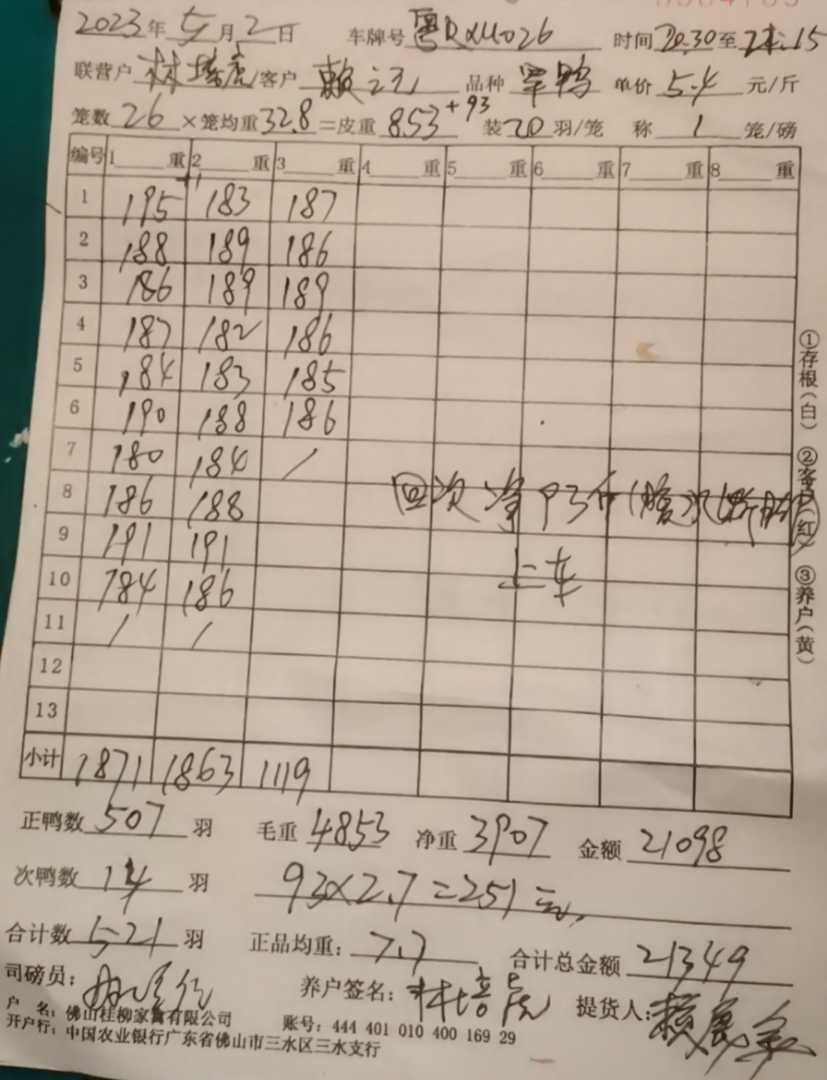 2023年5月2日 车牌号 粤RXU026 时间 20.30至21.15
联营户 林培虎 客户 赖 品种 单价 5.4 元/斤
笼数 26 ×笼均重 32.8 =皮重 853 +93 装 20 羽/笼 称 1 笼/磅
编号 1 重 2 重 3 重 4 重 5 重 6 重 7 重 8 重
1 195 183 187
2 188 189 186
3 186 189 189
4 187 182 186
5 184 183 185
6 190 188 186
7 180 184 /
8 186 188
9 191 191
10 184 186
11 / /
12
13
回次 净 93斤
上车
小计 1871 1863 1119
正鸭数 507 羽 毛重 4853 净重 3907 金额 21098
次鸭数 14 羽 93×2.7=251元
合计数 521 羽 正品均重: 7.7 合计总金额 21349
司磅员: 养户签名: 林培虎 提货人:
户 名: 佛山桂柳家禽有限公司 账号: 444 401 010 400 169 29
开户行: 中国农业银行广东省佛山市三水区三水支行
①存根(白) ②客户(红) ③养户(黄)